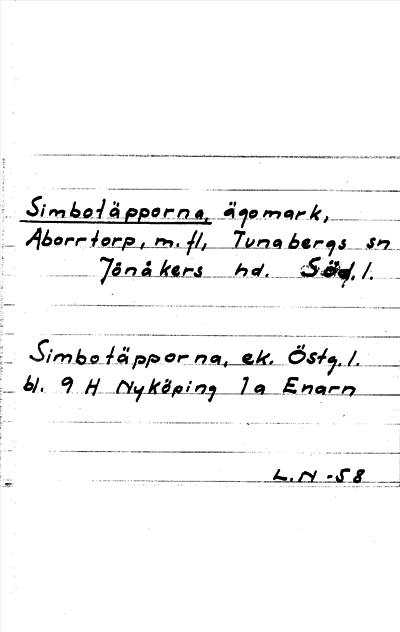 Simbotäpporna, ägomark,
Aborrtorp, m. fl, Tunabergs sn
Jönåkers hd. Söd. l.
Simbotäpporna, ek. Östg. l.
bl. 9 H Nyköping 1a Enarn
L. N -58